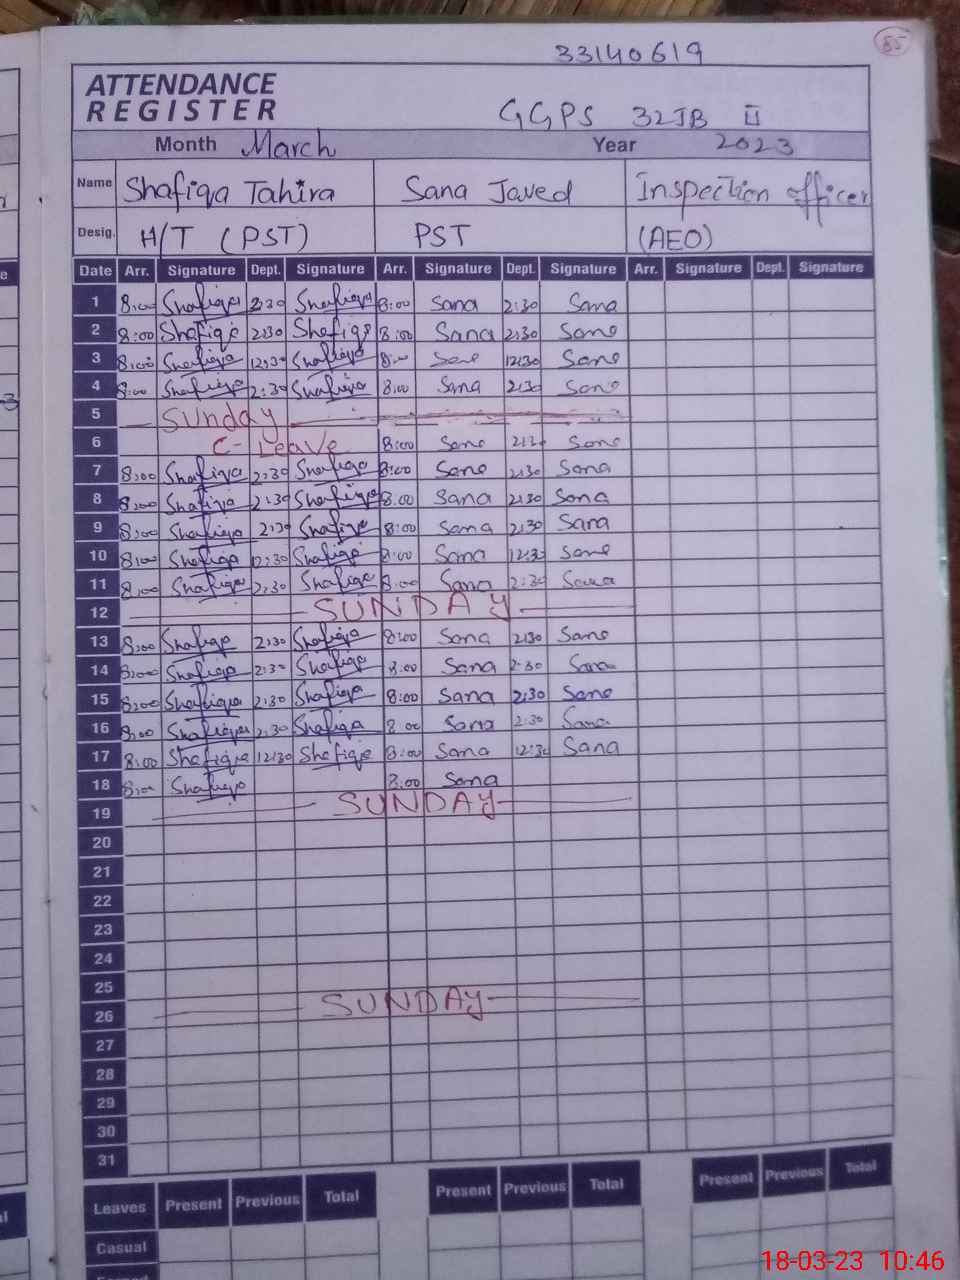 33140619
85
ATTENDANCE
REGISTER
GGPS 32JB II
Month March Year 2023
Name Shafiqa Tahira Sana Javed Inspection officer
Desig. H/T (PST) PST (AEO)
Date Arr. Signature Dept. Signature Arr. Signature Dept. Signature Arr. Signature Dept. Signature
1 8:00 Shafiqa 2:30 Shafiqa 8:00 Sana 2:30 Sana
2 8:00 Shafiqa 2:30 Shafiqa 8:00 Sana 2:30 Sana
3 8:00 Shafiqa 12:30 Shafiqa 8:00 Sana 12:30 Sana
4 8:00 Shafiqa 2:30 Shafiqa 8:00 Sana 2:30 Sana
5 Sunday
6 C-Leave 8:00 Sana 2:30 Sana
7 8:00 Shafiqa 2:30 Shafiqa 8:00 Sana 2:30 Sana
8 8:00 Shafiqa 2:30 Shafiqa 8:00 Sana 2:30 Sana
9 8:00 Shafiqa 2:30 Shafiqa 8:00 Sana 2:30 Sana
10 8:00 Shafiqa 12:30 Shafiqa 8:00 Sana 12:30 Sana
11 8:00 Shafiqa 2:30 Shafiqa 8:00 Sana 2:30 Sana
12 SUNDAY
13 8:00 Shafiqa 2:30 Shafiqa 8:00 Sana 2:30 Sana
14 8:00 Shafiqa 2:30 Shafiqa 8:00 Sana 2:30 Sana
15 8:00 Shafiqa 2:30 Shafiqa 8:00 Sana 2:30 Sana
16 8:00 Shafiqa 2:30 Shafiqa 8:00 Sana 2:30 Sana
17 8:00 Shafiqa 12:30 Shafiqa 8:00 Sana 12:30 Sana
18 8:00 Shafiqa 8:00 Sana
19 SUNDAY
20
21
22
23
24
25
26 SUNDAY
27
28
29
30
31
Leaves Present Previous Total Present Previous Total Present Previous Total
Casual
18-03-23 10:46